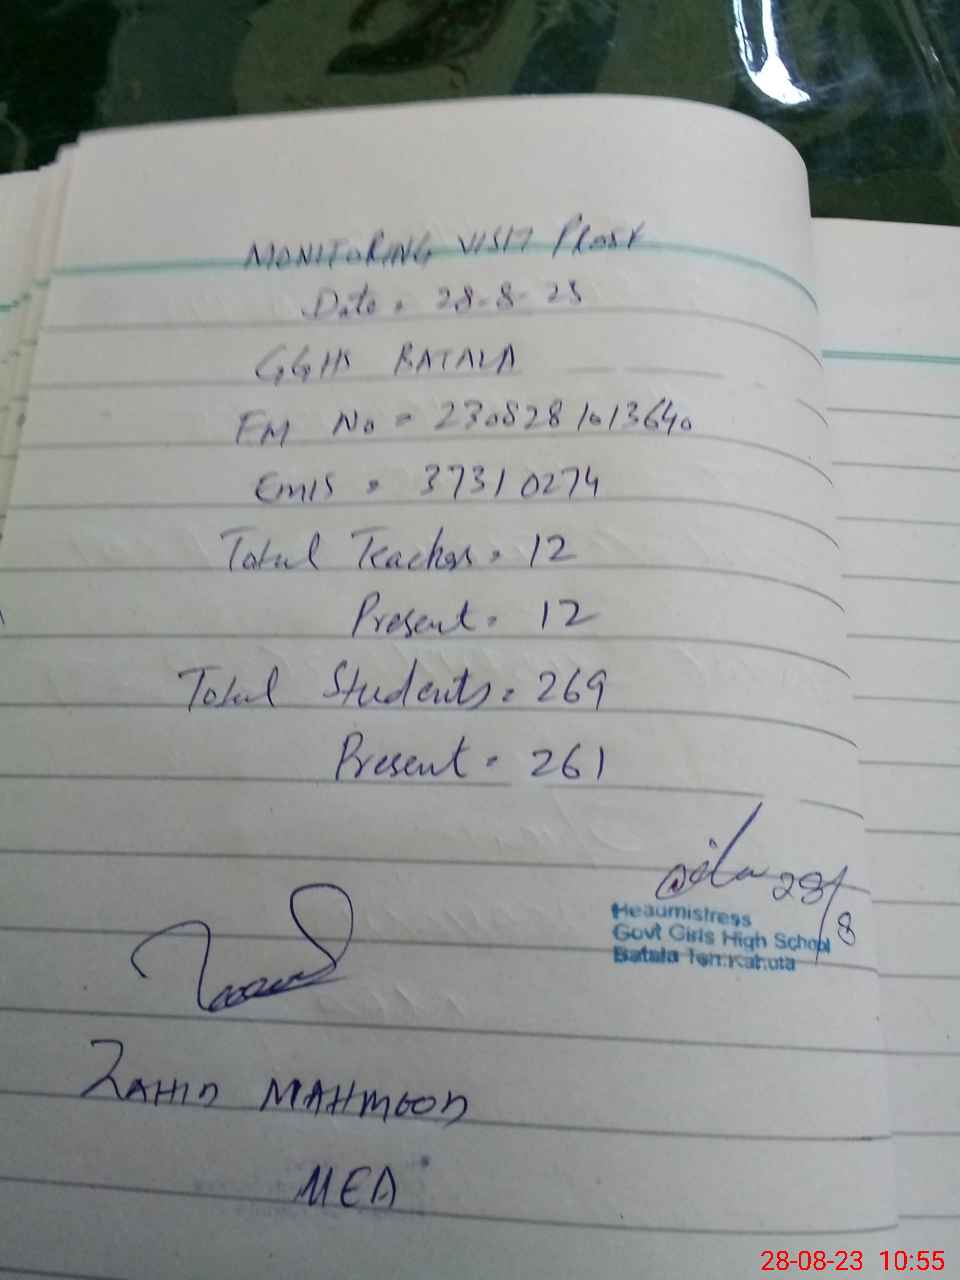 MONITORING VISIT PROOF
Date = 28-8-23
GGHS BATALA
FM No = 2308281013640
EMIS = 37310274
Total Teachers = 12
Present = 12
Total Students = 269
Present = 261
28/8
Headmistress
Govt Girls High School
Batala Teh: Kahuta
ZAHID MAHMOOD
MEA
28-08-23 10:55